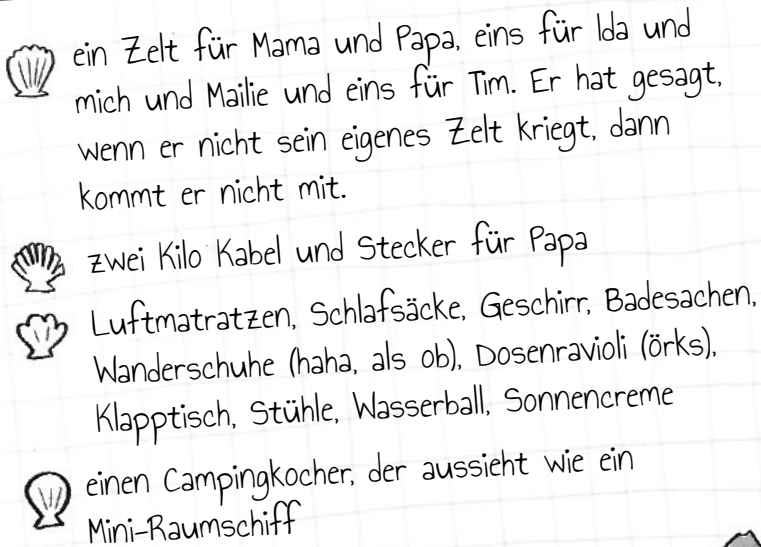 ein Zelt für Mama und Papa, eins für Ida und
mich und Mailie und eins für Tim. Er hat gesagt,
wenn er nicht sein eigenes Zelt kriegt, dann
kommt er nicht mit.
zwei Kilo Kabel und Stecker für Papa
Luftmatratzen, Schlafsäcke, Geschirr, Badesachen,
Wanderschuhe (haha, als ob), Dosenravioli (örks),
Klapptisch, Stühle, Wasserball, Sonnencreme
einen Campingkocher, der aussieht wie ein
Mini-Raumschiff